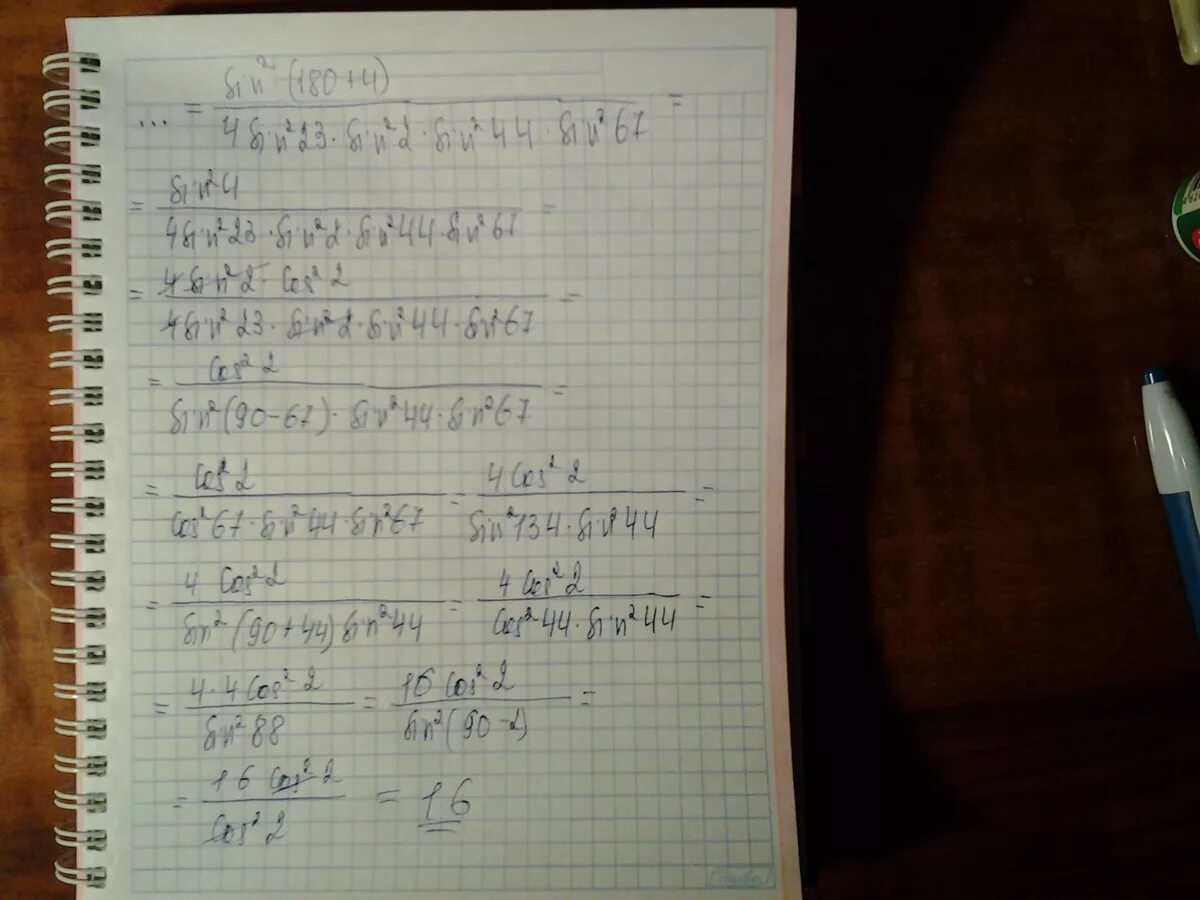 ... = sin² (180+4) / 4 sin² 23 · sin² 2 · sin² 44 · sin² 67 =
= sin² 4 / 4 sin² 23 · sin² 2 · sin² 44 · sin² 67 =
= 4 sin² 2 · cos² 2 / 4 sin² 23 · sin² 2 · sin² 44 · sin² 67 =
= cos² 2 / sin² (90-67) · sin² 44 · sin² 67 =
= cos² 2 / cos² 67 · sin² 44 · sin² 67 = 4 cos² 2 / sin² 134 · sin² 44 =
= 4 cos² 2 / sin² (90+44) sin² 44 = 4 cos² 2 / cos² 44 · sin² 44 =
= 4 · 4 cos² 2 / sin² 88 = 16 cos² 2 / sin² (90-2) =
= 16 cos² 2 / cos² 2 = 16